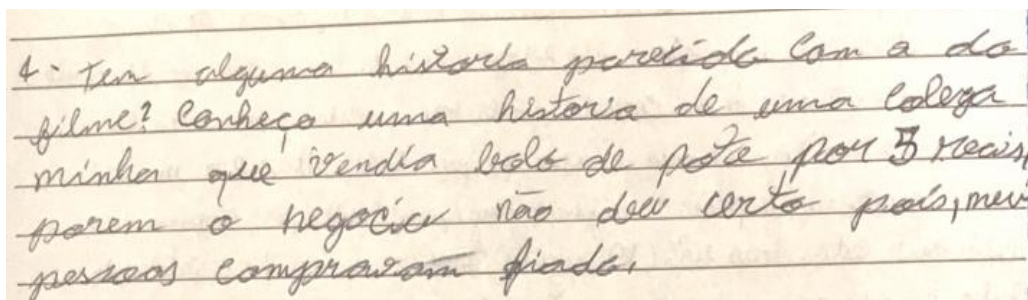 4- Tem alguma historia parecida com a do
filme? Conheço uma historia de uma colega
minha que vendia bolo de pote por 5 reais,
porem o negocio não deu certo pois,
pessoas compravam fiado.